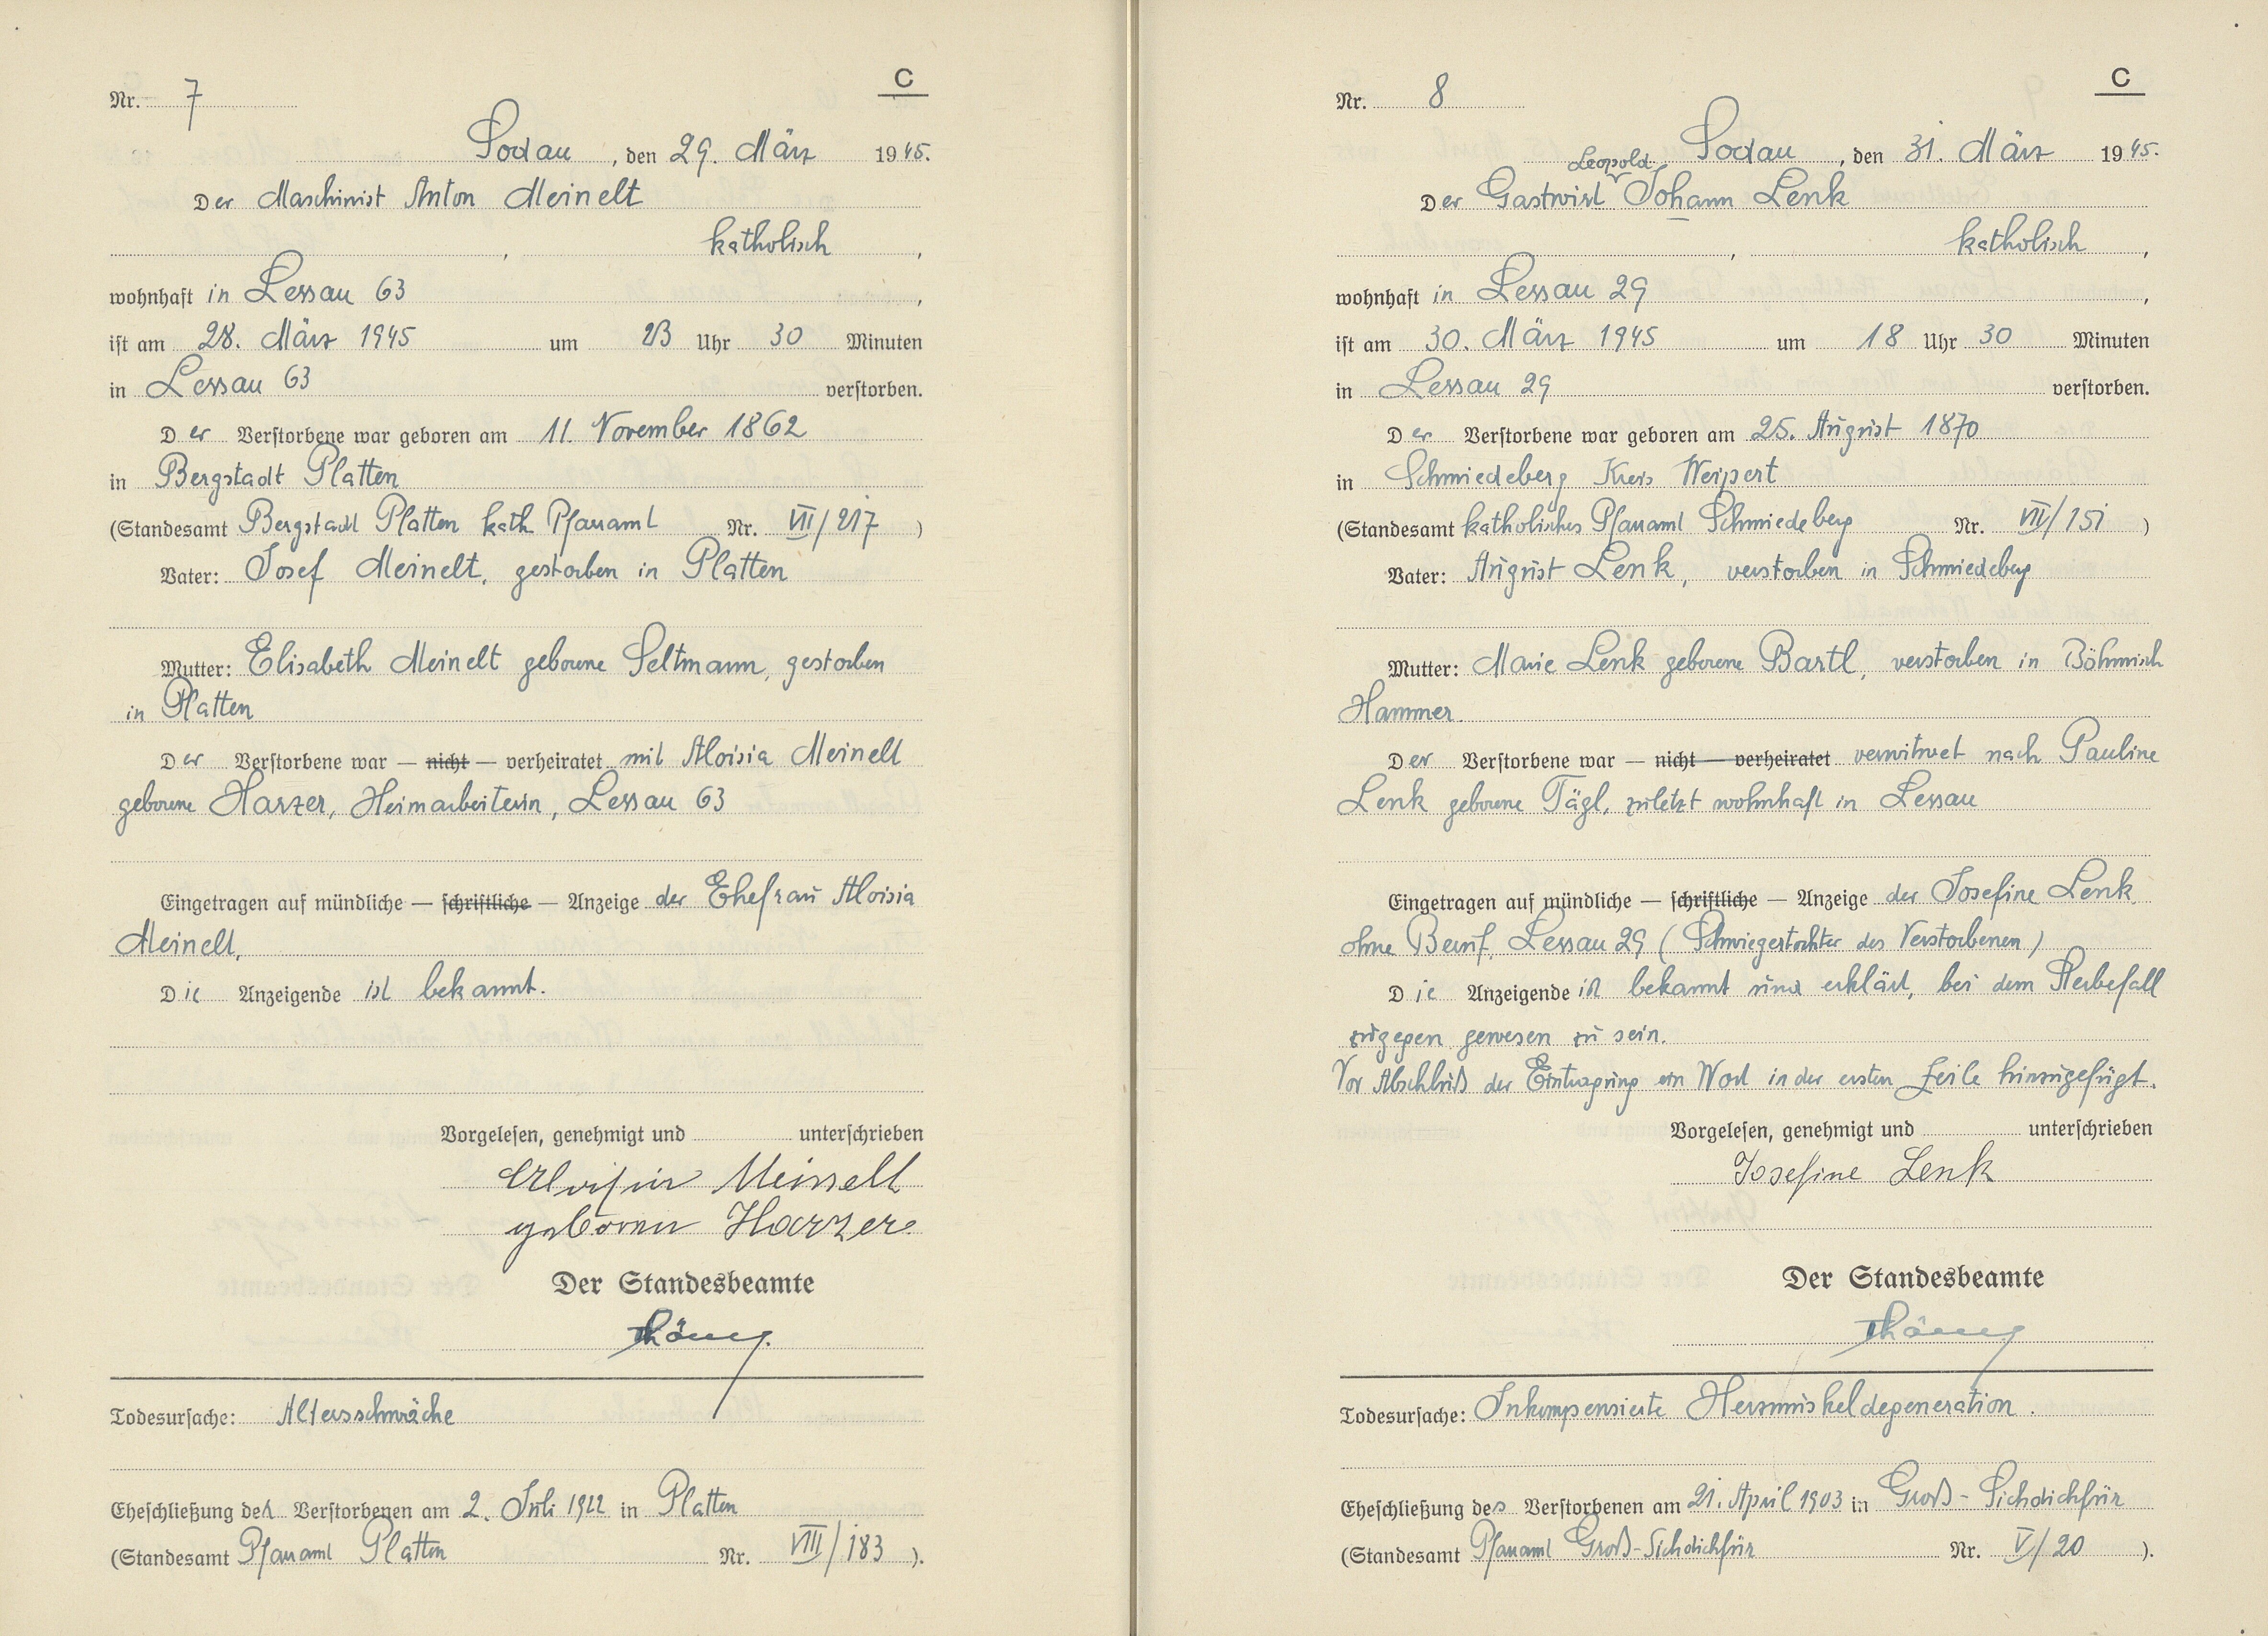 C
Nr. 7
Sodau, den 29. März 1945.
Der Maschinist Anton Meinelt
, katholisch,
wohnhaft in Lessau 63,
ist am 28. März 1945 um 23 Uhr 30 Minuten
in Lessau 63 verstorben.
Der Verstorbene war geboren am 11. November 1862
in Bergstadt Platten
(Standesamt Bergstadt Platten kath. Pfarramt Nr. VII/217)
Vater: Josef Meinelt, gestorben in Platten
Mutter: Elisabeth Meinelt geborene Seltmann, gestorben
in Platten
Der Verstorbene war — nicht — verheiratet mit Aloisia Meinelt
geborene Harzer, Heimarbeiterin, Lessau 63
Eingetragen auf mündliche — schriftliche — Anzeige der Ehefrau Aloisia
Meinelt.
Die Anzeigende ist bekannt.
Vorgelesen, genehmigt und unterschrieben
Aloisia Meinelt
geborene Harzer.
Der Standesbeamte
Todesursache: Altersschwäche
Eheschließung des Verstorbenen am 2. Juli 1922 in Platten
(Standesamt Pfarramt Platten Nr. VIII/183).
C
Nr. 8
Sodau, den 31. März 1945.
Leopold
Der Gastwirt Johann Lenk
, katholisch,
wohnhaft in Lessau 29,
ist am 30. März 1945 um 18 Uhr 30 Minuten
in Lessau 29 verstorben.
Der Verstorbene war geboren am 25. August 1870
in Schmiedeberg Kreis Weipert
(Standesamt katholisches Pfarramt Schmiedeberg Nr. VII/151)
Vater: August Lenk, verstorben in Schmiedeberg
Mutter: Marie Lenk geborene Bartl, verstorben in Böhmisch
Hammer.
Der Verstorbene war — nicht — verheiratet verwitwet nach Pauline
Lenk geborene Tägl, zuletzt wohnhaft in Lessau
Eingetragen auf mündliche — schriftliche — Anzeige der Josefine Lenk
ohne Beruf, Lessau 29 (Schwiegertochter des Verstorbenen)
Die Anzeigende ist bekannt und erklärt, bei dem Sterbefall
zugegen gewesen zu sein.
Vor Abschluß der Eintragung ein Wort in der ersten Zeile hinzugefügt.
Vorgelesen, genehmigt und unterschrieben
Josefine Lenk
Der Standesbeamte
Todesursache: Inkompensierte Herzmuskeldegeneration.
Eheschließung des Verstorbenen am 21. April 1903 in Groß-Sichdichfür
(Standesamt Pfarramt Groß-Sichdichfür Nr. V/20).